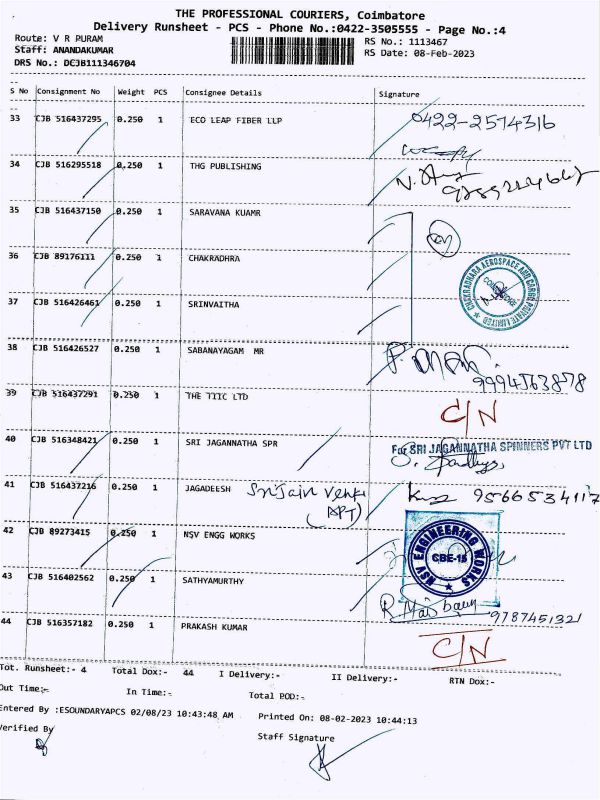 THE PROFESSIONAL COURIERS, Coimbatore
Delivery Runsheet - PCS - Phone No.:0422-3505555 - Page No.:4
Route: V R PURAM
RS No.: 1113467
Staff: ANANDAKUMAR
RS Date: 08-Feb-2023
DRS No.: DCJB111346704
S No Consignment No Weight PCS Consignee Details Signature
33 CJB 516437295 0.250 1 ECO LEAP FIBER LLP 0422-2574316
34 CJB 516295518 0.250 1 THG PUBLISHING
35 CJB 516437150 0.250 1 SARAVANA KUAMR
36 CJB 89176111 0.250 1 CHAKRADHRA
CHAKRADHARA AEROSPACE AND CARGO PRIVATE LIMITED
COIMBATORE
37 CJB 516426461 0.250 1 SRINVAITHA
38 CJB 516426527 0.250 1 SABANAYAGAM MR
9994563878
39 CJB 516437291 0.250 1 THE TIIC LTD C/N
40 CJB 516348421 0.250 1 SRI JAGANNATHA SPR
For SRI JAGANNATHA SPINNERS PVT LTD
41 CJB 516437216 0.250 1 JAGADEESH 9566534117
(APT)
42 CJB 89273415 0.250 1 NSV ENGG WORKS
NSV ENGINEERING WORKS
CBE-15
43 CJB 516402562 0.250 1 SATHYAMURTHY
9787451321
44 CJB 516357182 0.250 1 PRAKASH KUMAR C/N
Tot. Runsheet:- 4 Total Dox:- 44 I Delivery:- II Delivery:- RTN Dox:-
Out Time:- In Time:- Total POD:-
Entered By :ESOUNDARYAPCS 02/08/23 10:43:48 AM Printed On: 08-02-2023 10:44:13
Verified By Staff Signature